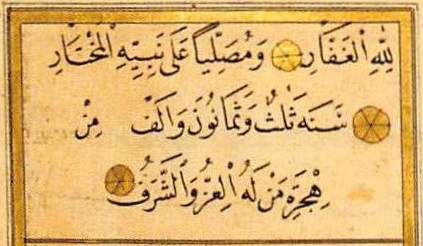 لِلّٰهِ الْغَفَّارِ وَمُصَلِّيًا عَلٰى نَبِيِّهِ الْمُخْتَارِ
سَنَةَ ثَلٰثٌ وَثَمَانُونَ وَاَلَفْ مِنْ
هِجْرَةِ مَنْ لَهُ الْعِزُّ وَالشَّرَفُ